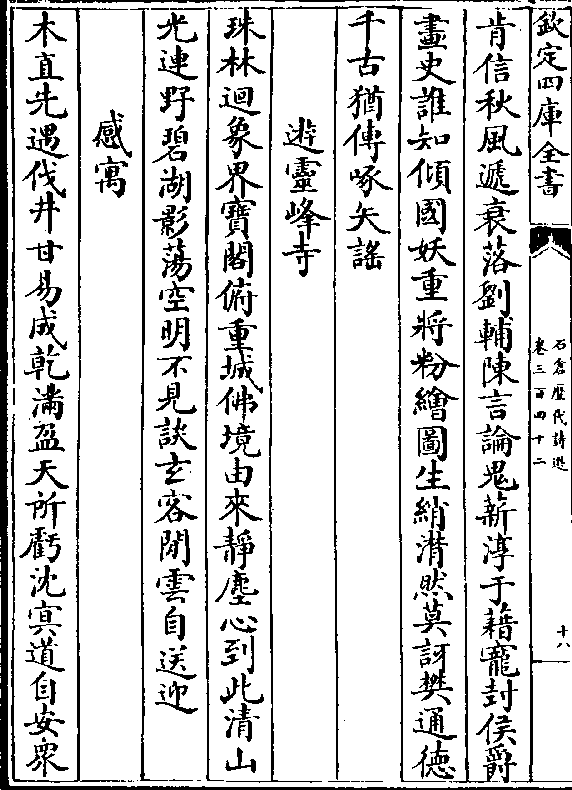 欽定四庫全書
石倉歷代詩選
卷三百四十二
十八
肯信秋風遞衰落劉輔陳言論鬼薪淳于藉寵封侯爵
畫史誰知傾國妖重將粉繪圖生綃潸然莫訝樊通德
千古猶傳啄矢謠
遊靈峰寺
珠林迴象界寶閣俯重城佛境由來靜塵心到此清山
光連野碧湖影蕩空明不見談玄客閒雲自送迎
感寓
木直先遇伐井甘易成乾滿盈天所虧沈冥道自安衆